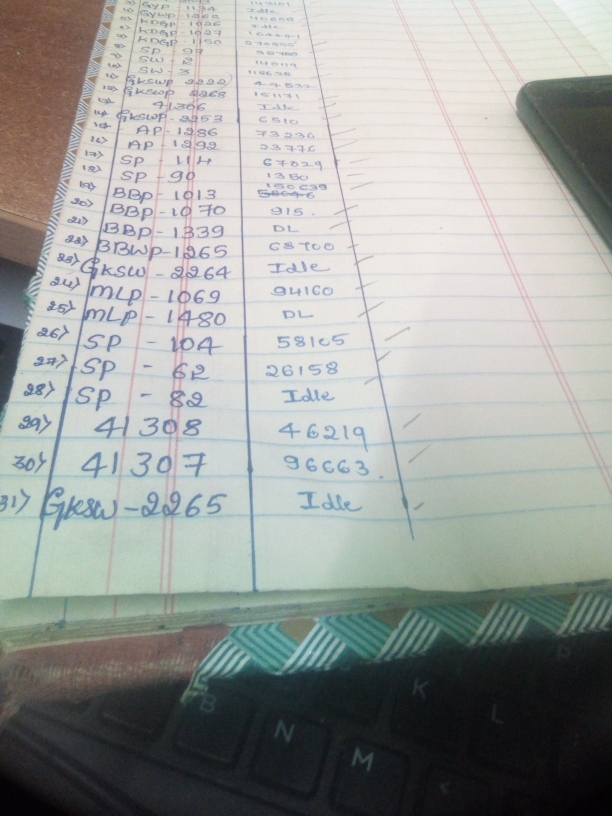 GYP - 1134
GYWP - 1262 Idle
KDGP - 1026 Idle
KDGP - 1027
KDGP - 1150
SP - 97
SW - 2
SW - 3
GKSWP - 2222
GKSWP - 2263 151171
41306 Idle
GKSWP - 2253 6510
AP - 1286 73230
16) AP - 1292 23776
17) SP - 114 67029
18) SP - 90 1350
150639
19) BBP - 1013
20) BBP - 1070 915.
21) BBP - 1339 DL
22) BBWP - 1265 68700
23) GKSW - 2264 Idle
24) MLP - 1069 94160
25) MLP - 1480 DL
26) SP - 104 58105
27) SP - 62 26158
28) SP - 82 Idle
29) 41308 46219
30) 41307 96663.
31) GKSW - 2265 Idle
B N M K L